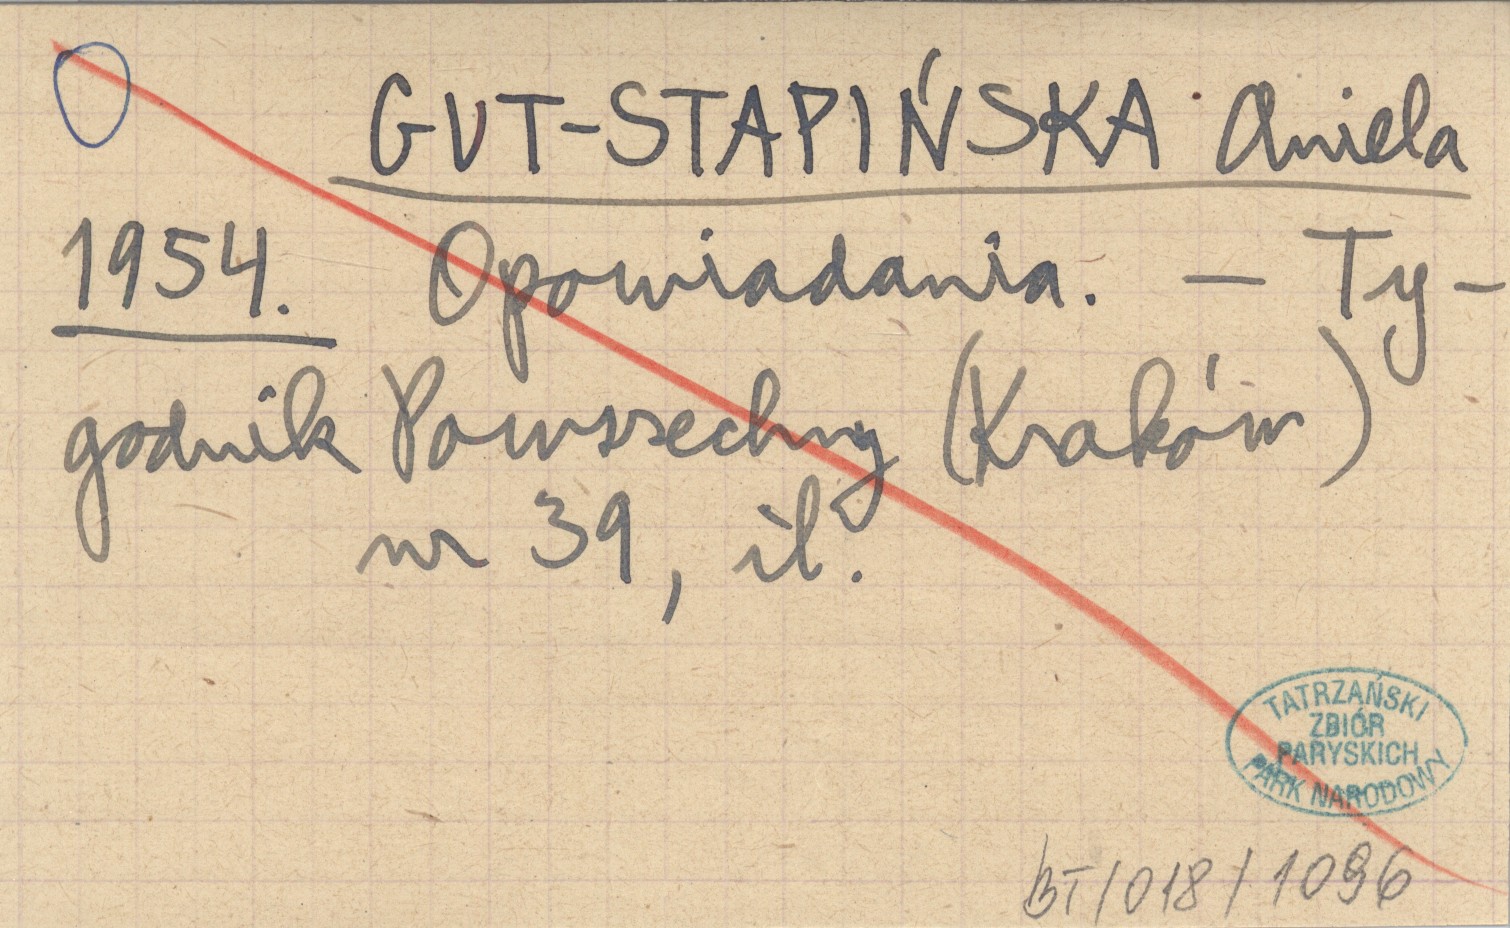 GUT-STAPIŃSKA Aniela
1954. Opowiadania. — Ty-
godnik Powszechny (Kraków)
nr 39, il.
TATRZAŃSKI
ZBIÓR
PARYSKICH
PARK NARODOWY
BT/018/1096